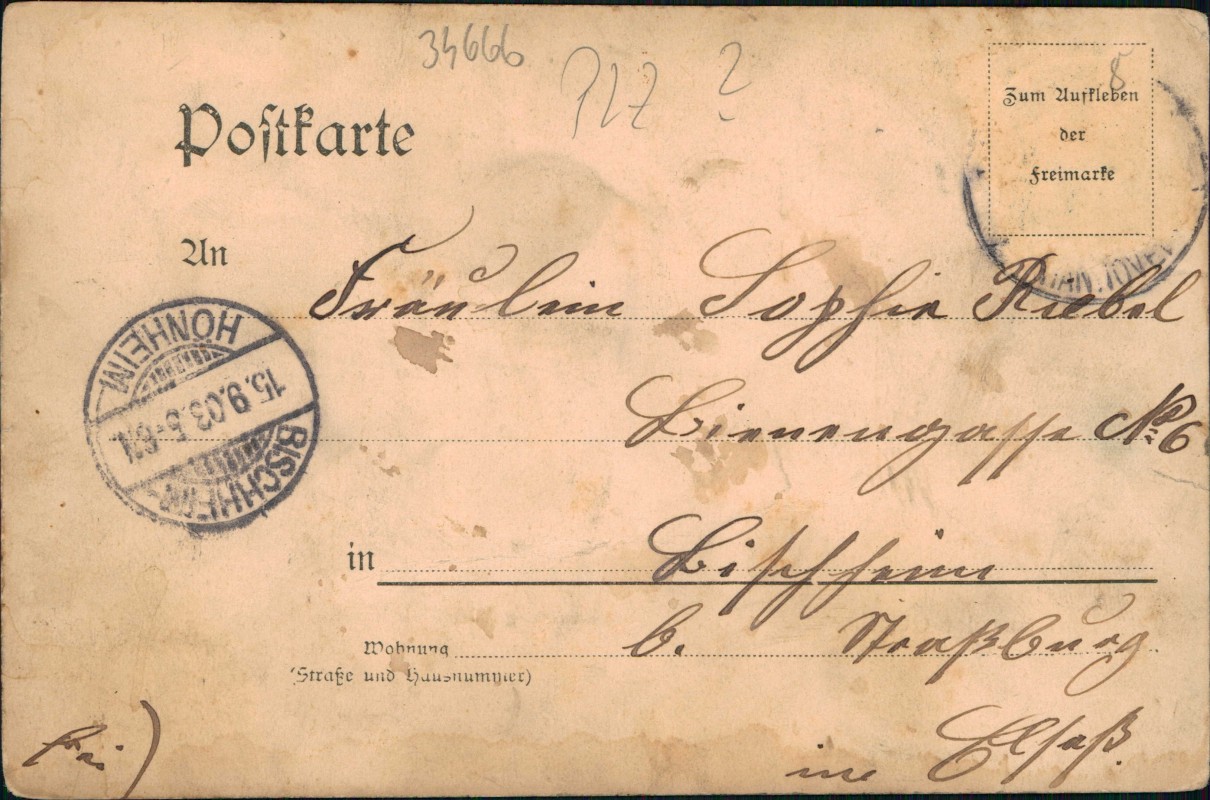 34666
PLZ ?
8
Postkarte
Zum Aufkleben
der
Freimarke
An
Fräulein Sophie Riebel
Bienengasse № 6
HÖNHEIM
15.9.03.5-6N.
BISCHHEIM
in Bischheim
b. Straßburg
Wohnung
(Straße und Hausnummer)
im Elsaß